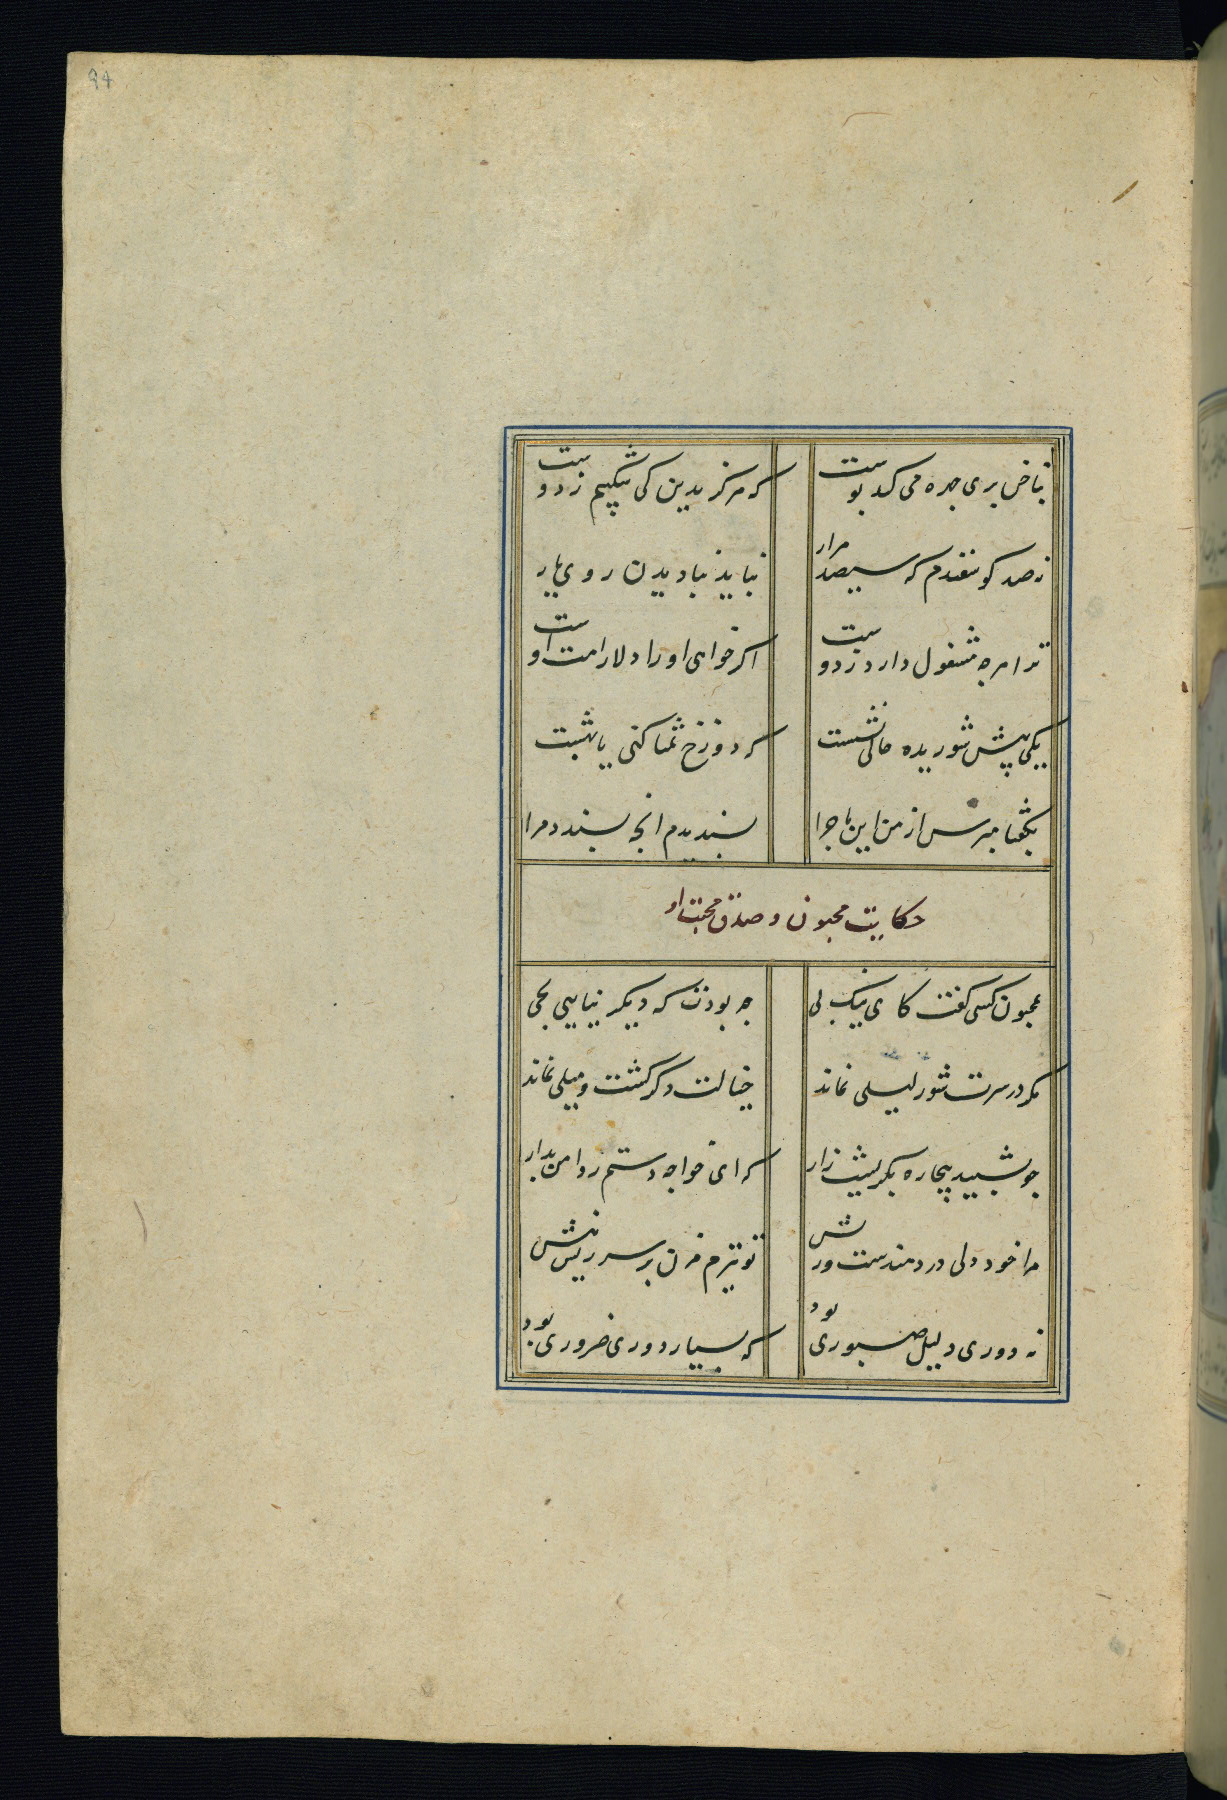 94
بناخن پری چهره می کند پوست
که هرگز بدین کی شکیبم ز دوست
نه صد گوسفندم که سیصد هزار
نباید بنا دیدن روی یار
ترا هرچه مشغول دارد ز دوست
اگر خواهی او را دلارامت اوست
یکی پیش شوریده حالی نشست
که دوزخ تمنا کنی یا بهشت
بگفتا مپرس از من این ماجرا
پسندیدم آنچه پسندد مرا
حکایت مجنون و صدق محبت او
بمجنون کسی گفت کای نیک پی
چه بودت که دیگر نیایی بحی
مگر در سرت شور لیلی نماند
خیالت دگر گشت و میلی نماند
چو بشنید بیچاره بگریست زار
که ای خواجه دستم ز دامن بدار
مرا خود دلی دردمندست وریش
تو نیزم مزن بر سر ریش نیش
نه دوری دلیل صبوری بود
که بسیار دوری ضروری بود